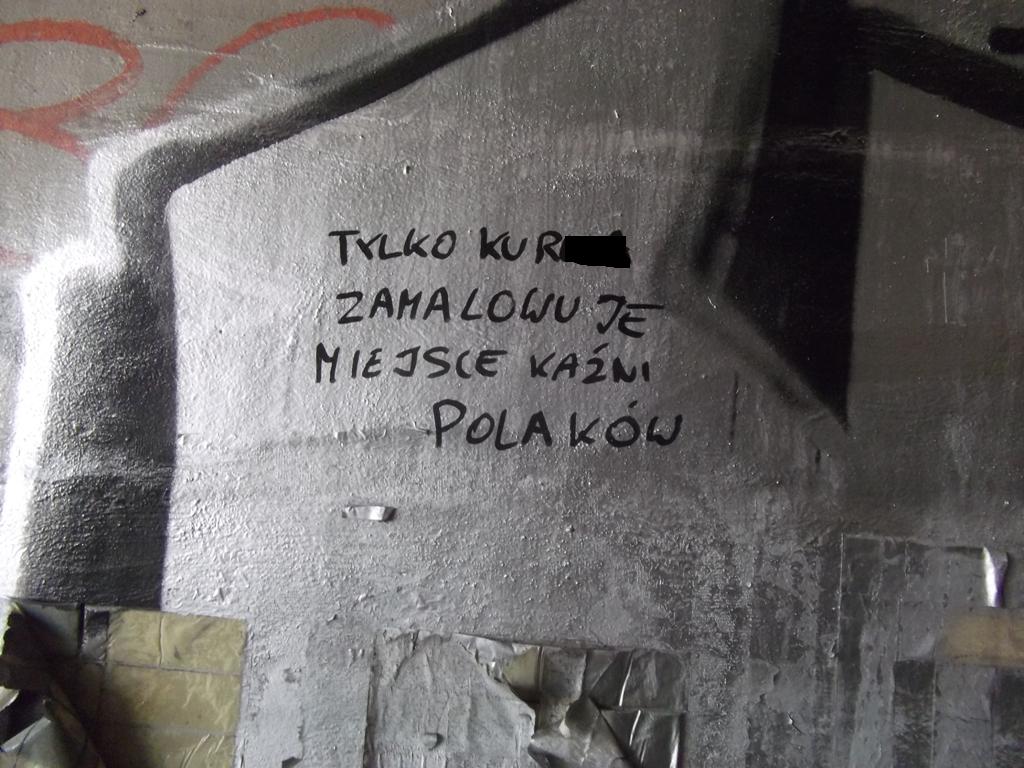 TYLKO KUR
ZAMALOWUJE
MIEJSCE KAŹNI
POLAKÓW